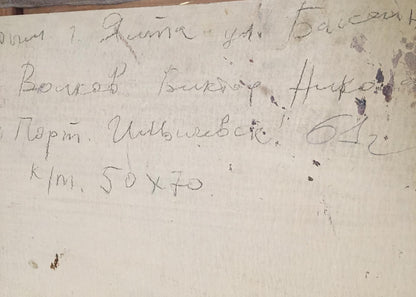 рым г. Ялта ул. Басси
Волков Виктор Никола
Порт. Ильичевск! 61г
к/т. 50х70